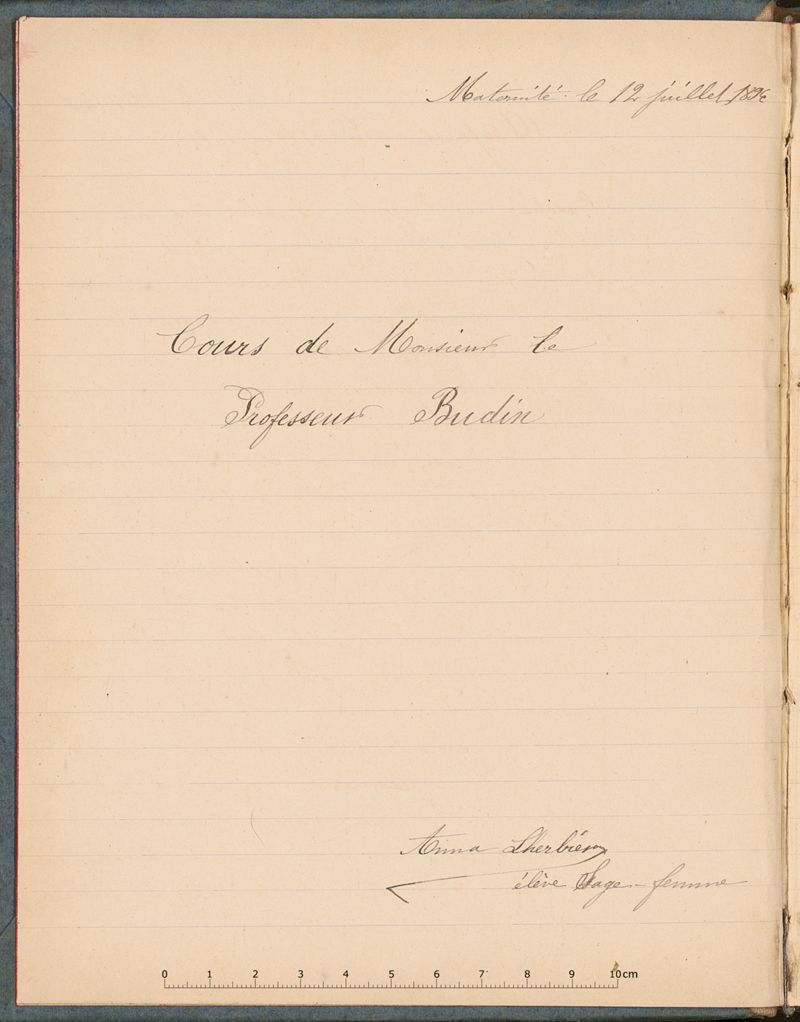 Maternité le 12 juillet
Cours de Monsieur le
Professeur Budin
Anna
élève Sage-femme
0 1 2 3 4 5 6 7 8 9 10 cm